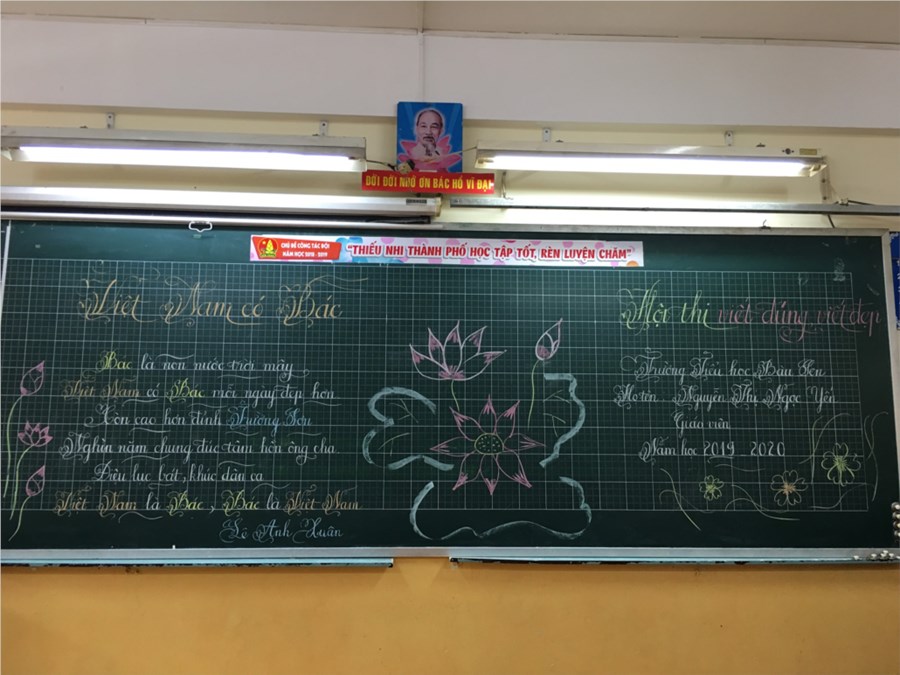 ĐỜI ĐỜI NHỚ ƠN BÁC HỒ VĨ ĐẠI
CHỦ ĐỀ CÔNG TÁC ĐỘI
NĂM HỌC 2018 - 2019
"THIẾU NHI THÀNH PHỐ HỌC TẬP TỐT, RÈN LUYỆN CHĂM"
Việt Nam có Bác
Bác là non nước trời mây
Việt Nam có Bác mỗi ngày đẹp hơn
Còn cao hơn đỉnh Trường Sơn
Nghìn năm chung đúc tâm hồn ông cha
Điệu lục bát, khúc dân ca
Việt Nam là Bác, Bác là Việt Nam
Lê Anh Xuân
Hội thi viết đúng viết đẹp
Trường Tiểu học Bàu Sen
Họ tên Nguyễn Thị Ngọc Yến
Giáo viên
Năm học 2019 2020